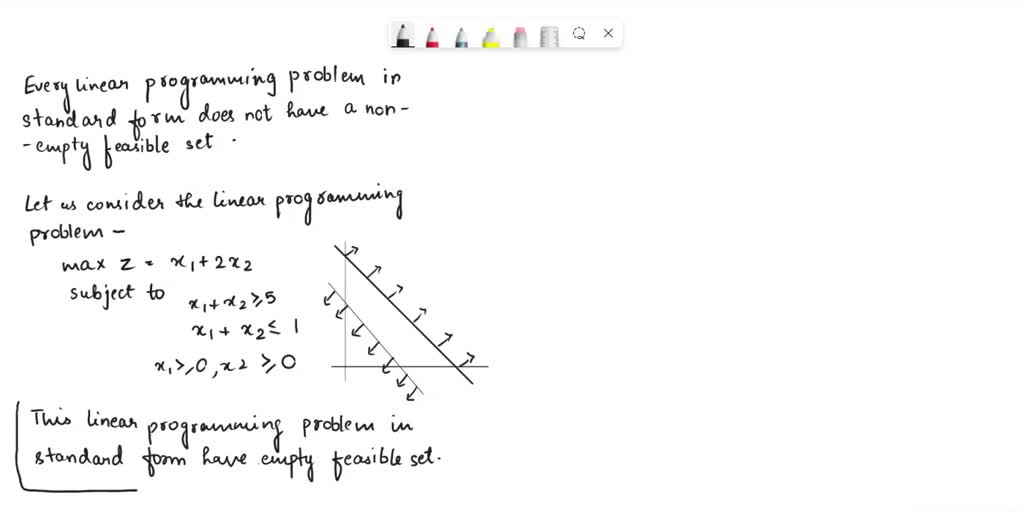 Every linear programming problem in
standard form does not have a non-
-empty feasible set.
Let us consider the linear programming
problem -
max z = x₁ + 2x₂
subject to
x₁ + x₂ ≥ 5
x₁ + x₂ ≤ 1
x₁ ≥ 0, x2 ≥ 0
This linear programming problem in
standard form have empty feasible set.